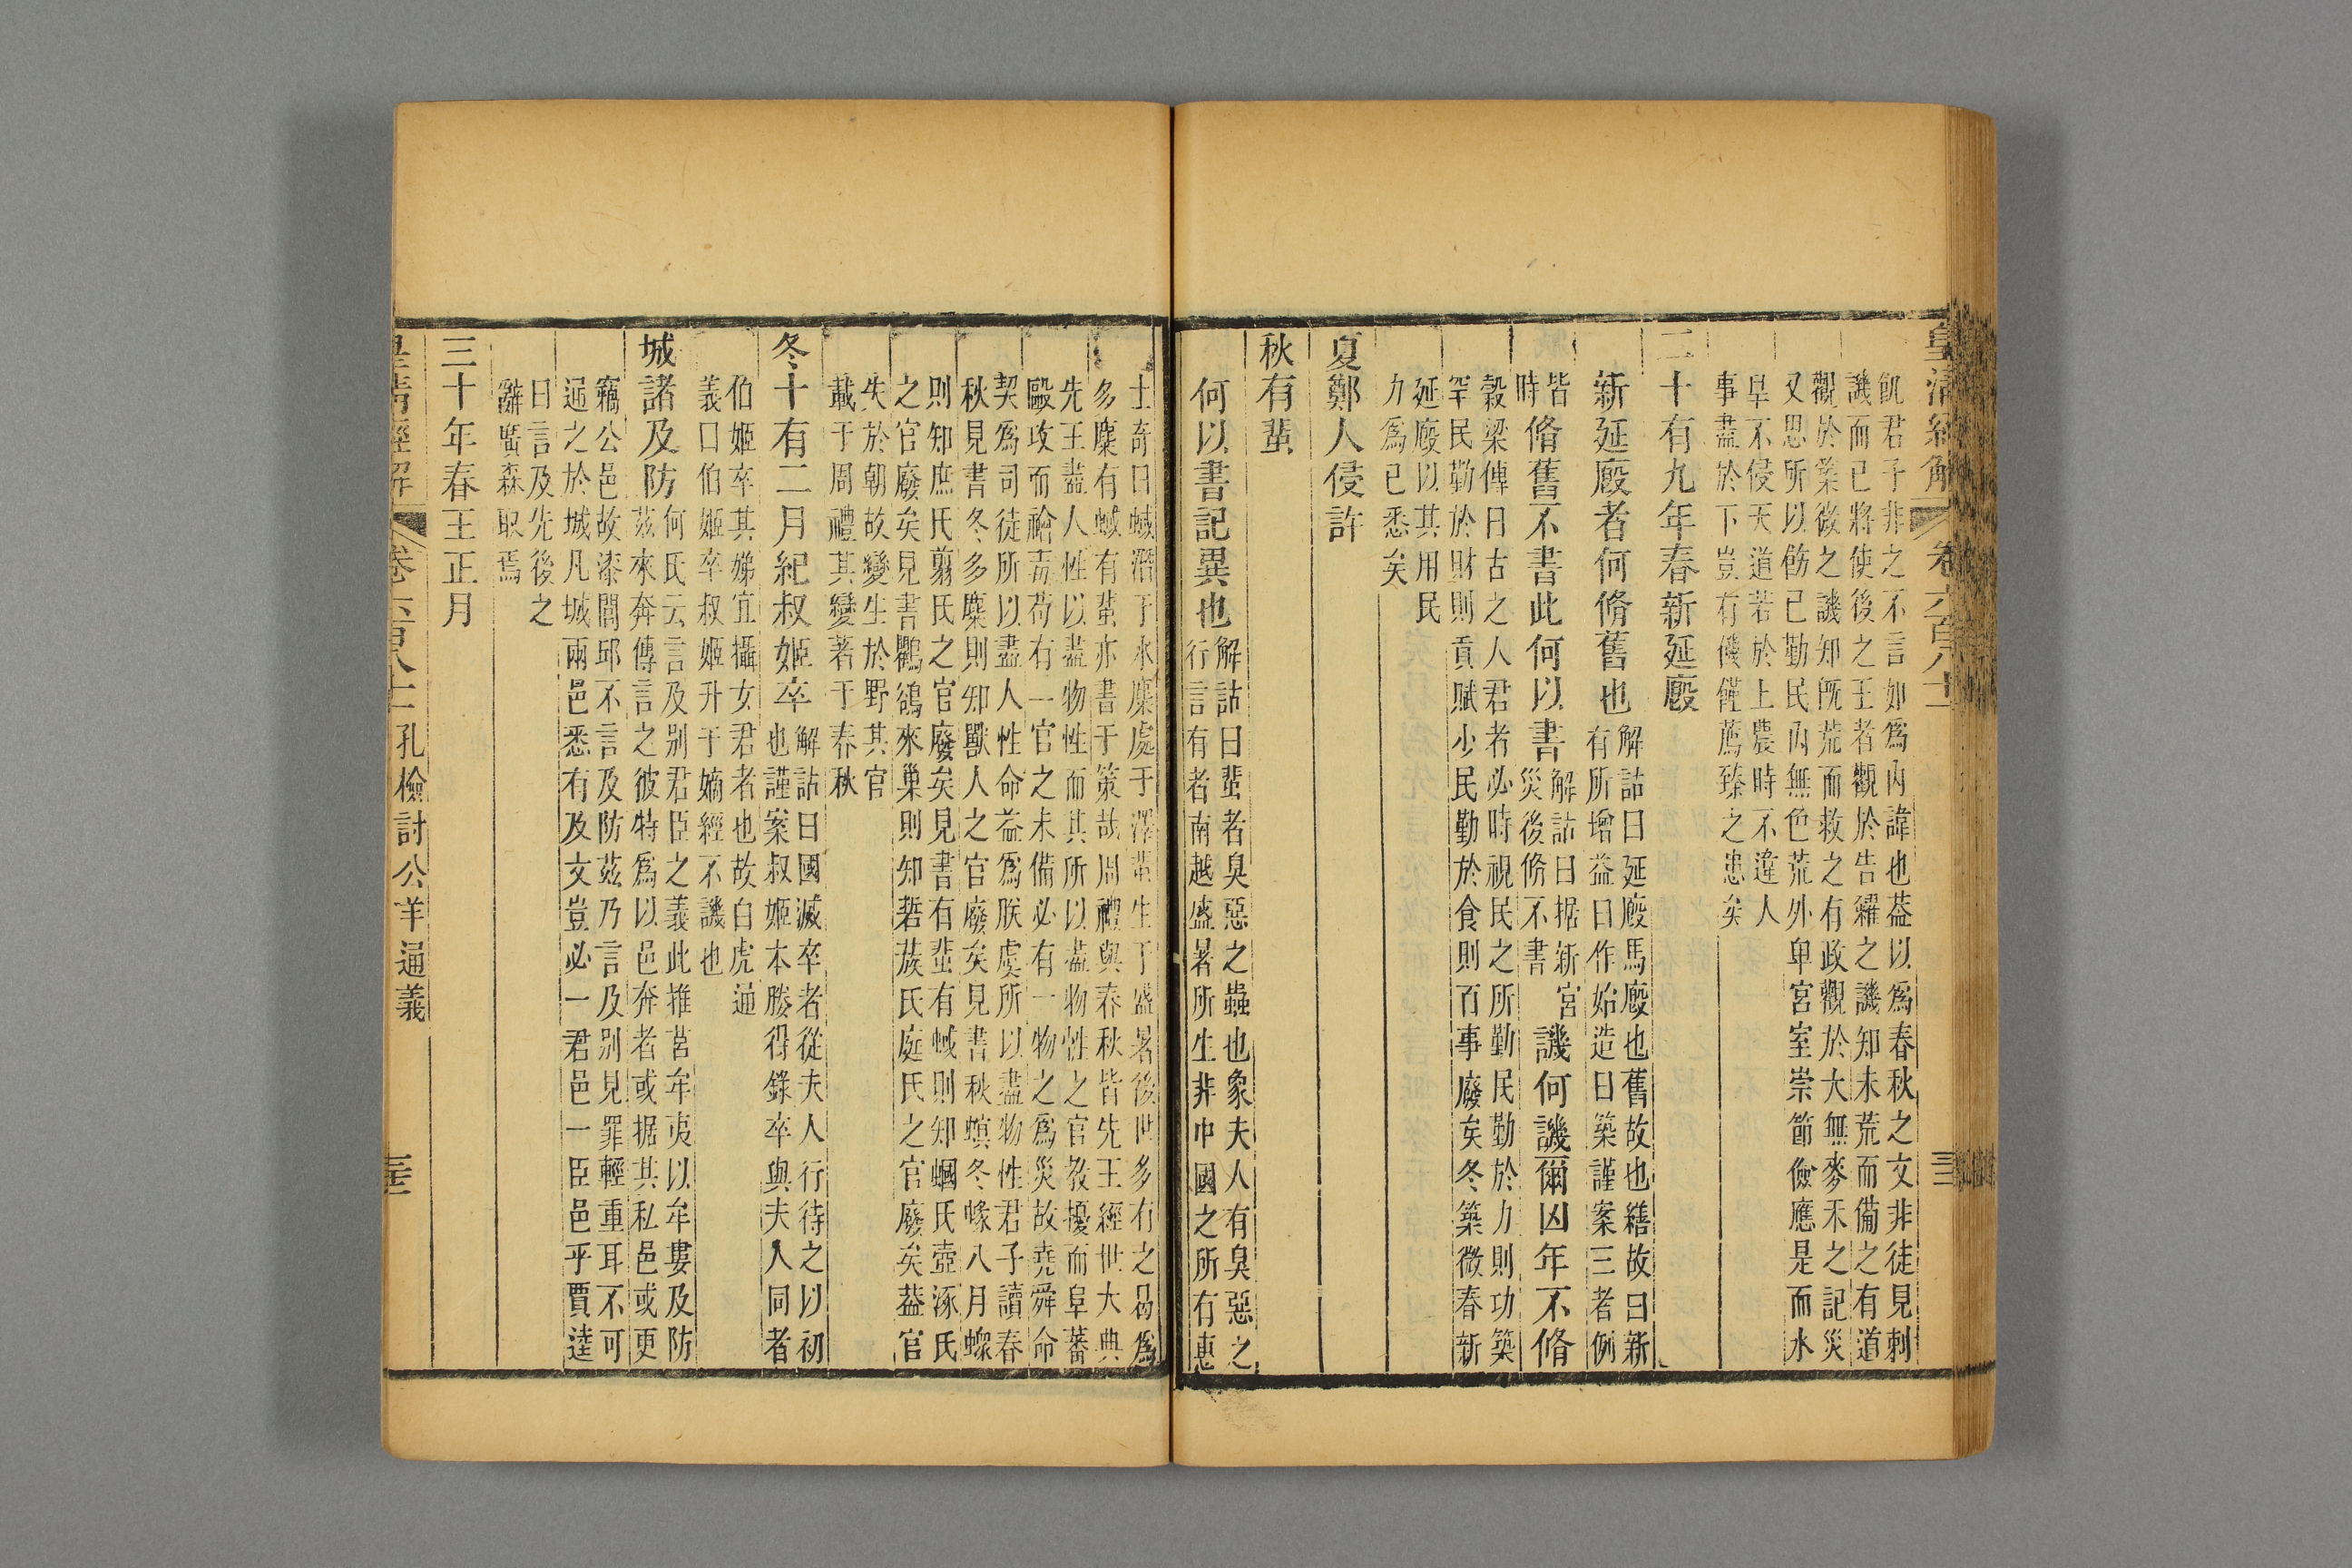 皇清經解 卷六百八十一
飢君子非之不言如爲內諱也葢以爲春秋之文非徒見刺
譏而已將使後之王者觀於告糴之譏知未荒而備之有道
觀於築微之譏知旣荒而救之有政觀於大無麥禾之記災
又思所以飭己勤民內無色荒外卑宮室崇節儉應是而水
旱不侵天道若於上農時不違人
事盡於下豈有饑饉薦臻之患矣
二十有九年春新延廏
新延廏者何脩舊也
解詁曰延廏馬廏也舊故也繕故曰新
有所增益曰作始造曰築謹案三者例
皆
時
脩舊不書此何以書
解詁曰据新宮
災後脩不書
譏何譏爾凶年不脩
穀梁傳曰古之人君者必時視民之所勤民勤於力則功築
罕民勤於財則貢賦少民勤於食則百事廢矣冬築微春新
延廏以其用民
力爲已悉矣
夏鄭人侵許
秋有蜚
何以書記異也
解詁曰蜚者臭惡之蟲也象夫人有臭惡之
行言有者南越盛暑所生非中國之所有惠
士奇曰蜮潛于水麋處于澤蜚生于盛暑後世多有之曷爲
多麋有蜮有蜚亦書于策哉周禮與春秋皆先王經世大典
先王盡人性以盡物性而其所以盡物性之官教擾而阜蕃
毆攻而禬毒苟有一官之未備必有一物之爲災故堯舜命
契爲司徒所以盡人性命益爲朕虞所以盡物性君子讀春
秋見書冬多麋則知獸人之官廢矣見書秋螟冬蝝八月螽
則知庶氏翦氏之官廢矣見書有蜚有蜮則知蟈氏壺涿氏
之官廢矣見書鸜鵒來巢則知硩蔟氏庭氏之官廢矣葢官
失於朝故變生於野其官
載于周禮其變著于春秋
冬十有二月紀叔姬卒
解詁曰國滅卒者從夫人行待之以初
也謹案叔姬本媵得錄卒與夫人同者
伯姬卒其娣宜攝女君者也故白虎通
義曰伯姬卒叔姬升于嫡經不譏也
城諸及防
何氏云言及別君臣之義此推莒牟夷以牟婁及防
茲來奔傳言之彼特爲以邑奔者或据其私邑或更
竊公邑故漆閭邱不言及防茲乃言及別見罪輕重耳不可
通之於城凡城兩邑悉有及文豈必一君邑一臣邑乎賈逵
曰言及先後之
辭廣森取焉
三十年春王正月
皇清經解 卷六百八十一 孔檢討公羊通義